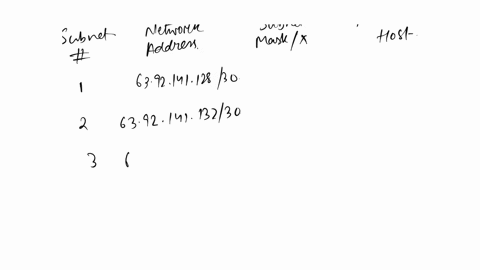 Subnet # Network Address Subnet Mask/x Host
1 63.92.141.128/30
2 63.92.141.132/30
3 6